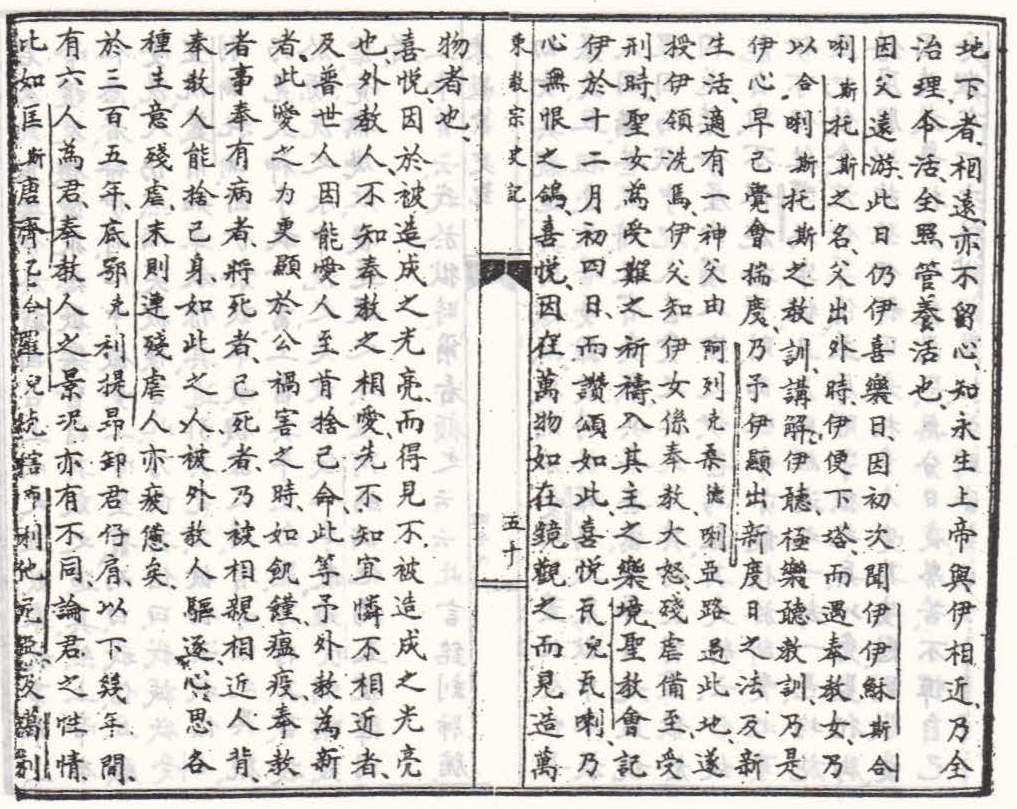 地下者、相遠、亦不留心、知永生上帝與伊相近、乃全
治理、令活、全照管養活也、
因父遠游、此日仍伊喜樂日、因初次聞伊伊穌斯合
唎斯托斯之名、父出外時、伊便下塔、而遇奉教女、乃
以合唎斯托斯之教訓、講解、伊聽極樂、聽教訓、乃是
伊心、早已覺會揣度、乃予伊顯出新度日之法、及新
生活、適有一神父由阿列克桑德唎亞路過此地、遂
授伊領洗焉、伊父知伊女係奉教大怒、殘虐備至、受
刑時、聖女為受難之祈禱、入其主之樂境、聖教會記
伊於十二月初四日、而讚頌如此、喜悅瓦兒瓦喇、乃
心無恨之鴿、喜悅、因在萬物、如在鏡觀之而見造萬
東教宗史記
五十
物者也、
喜悅、因於被造成之光亮、而得見不被造成之光亮
也、外教人、不知奉教之相愛、先不知宜憐不相近者、
及普世人、因能愛人至肯捨己命、此等予外教為新
者、此愛之力更顯於公禍害之時、如飢饉、瘟疫、奉教
者事奉有病者、將死者、已死者、乃被相親相近人背、
奉教人能捨己身、如此之人、被外教人驅逐、心思各
種生意殘虐、末則連殘虐人亦疲憊矣、
於三百五年、底鄂克利提昂卸君仔肩、以下幾年間、
有六人為君、奉教人之景況亦有不同、論君之性情
比如匡斯唐齊已合羅兒